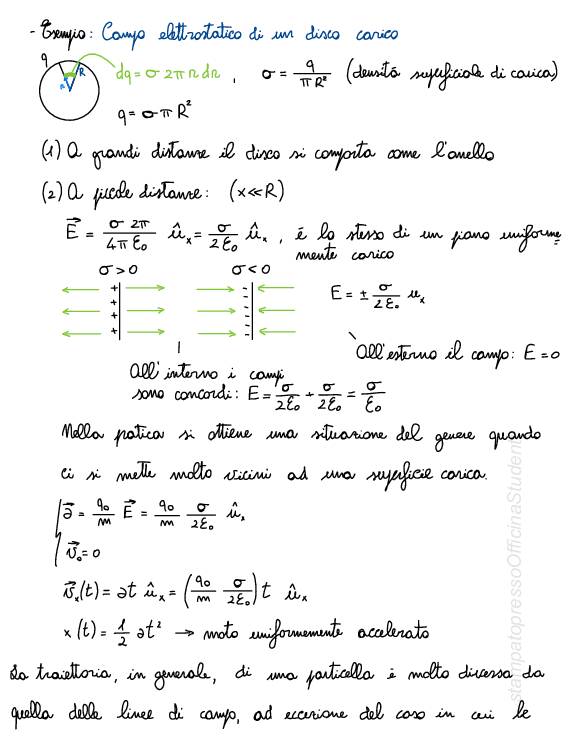 - Esempio: Campo elettrostatico di un disco carico
q R r dq = σ 2π r dr , σ = q/πR² (densità superficiale di carica)
q = σ π R²
(1) A grandi distanze il disco si comporta come l'anello
(2) A piccole distanze: (x≪R)
E⃗ = σ 2π/4π ε₀ û_x = σ/2ε₀ û_x , è lo stesso di un piano uniforme
mente carico
σ>0 σ<0
E = ± σ/2ε₀ u_x
All'esterno il campo: E=0
All'interno i campi
sono concordi: E = σ/2ε₀ + σ/2ε₀ = σ/ε₀
Nella pratica si ottiene una situazione del genere quando
ci si mette molto vicini ad una superficie carica.
a⃗ = q₀/m E⃗ = q₀/m σ/2ε₀ û_x
v⃗₀ = 0
v⃗_x(t) = at û_x = (q₀/m σ/2ε₀) t û_x
x(t) = 1/2 at² → moto uniformemente accelerato
La traiettoria, in generale, di una particella è molto diversa da
quella delle linee di campo, ad eccezione del caso in cui le
stampatopressoOfficinaStudenti